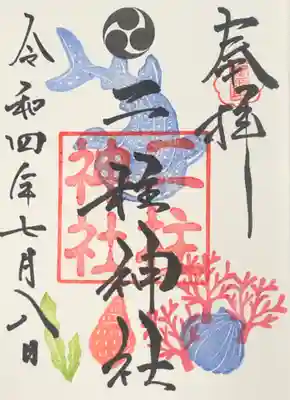 奉拝
三柱神社
三柱神社
令和四年七月八日